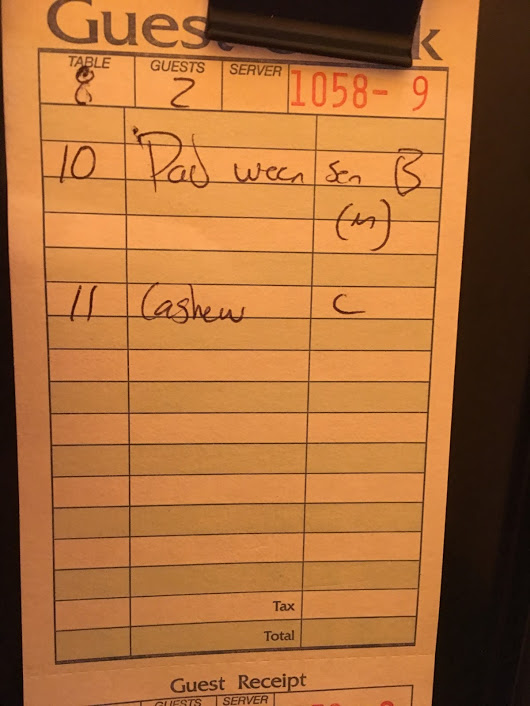 Guest
TABLE GUESTS SERVER 1058-9
8 2
10 Pad ween sen B
(m)
11 Cashew C
Tax
Total
Guest Receipt
GUESTS SERVER